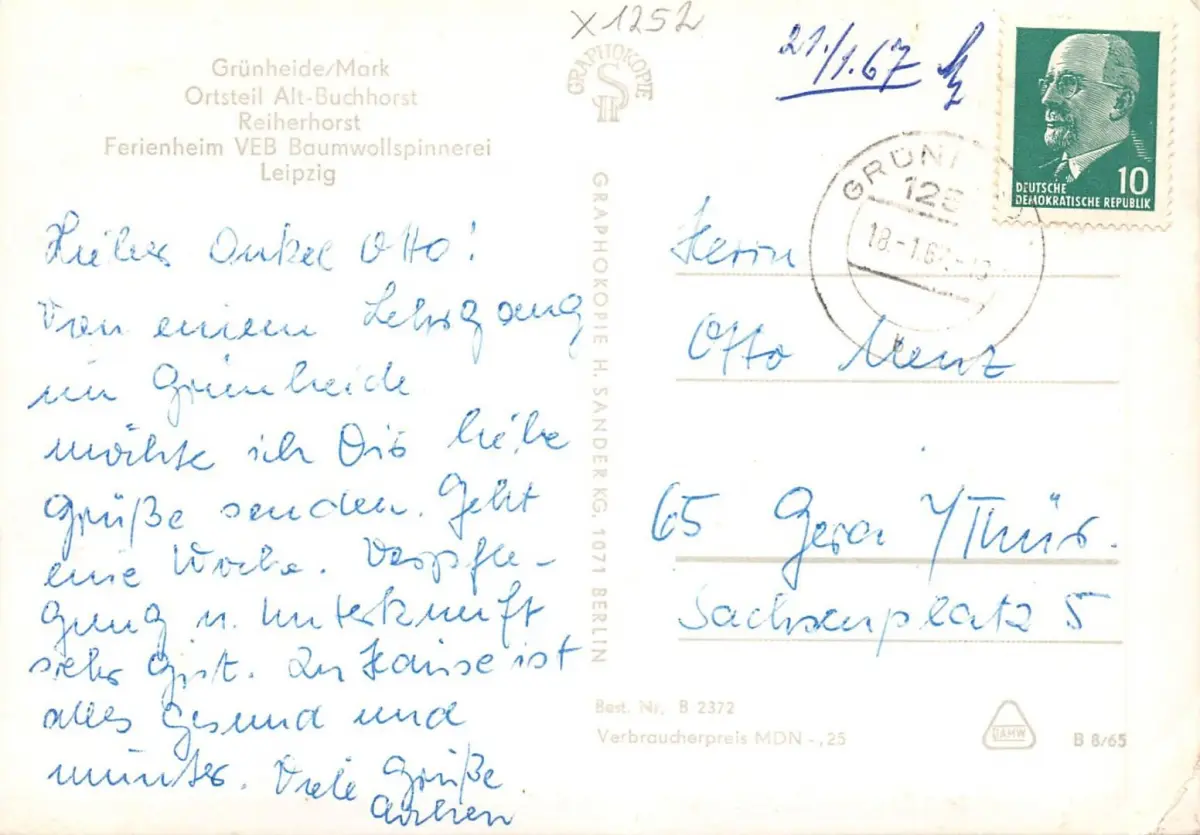 X1252
21./1.67
GRAPHOKOPIE
Grünheide/Mark
Ortsteil Alt-Buchhorst
Reiherhorst
Ferienheim VEB Baumwollspinnerei
Leipzig
Lieber Onkel Otto!
Von einem Lehrgang
in Grünheide
möchte ich Dir liebe
Grüße senden. Geht
eine Woche. Verpfle-
gung u. Unterkunft
sehr gut. Zu Hause ist
alles gesund und
munter. Viele Grüße
GRAPHOKOPIE H. SANDER KG, 1071 BERLIN
DEUTSCHE
DEMOKRATISCHE REPUBLIK
10
18.-1.67
b
Herrn
Otto Menz
65 Gera /Thür.
Sachsenplatz 5
Best. Nr. B 2372
Verbraucherpreis MDN -,25
DAMW
B 8/65